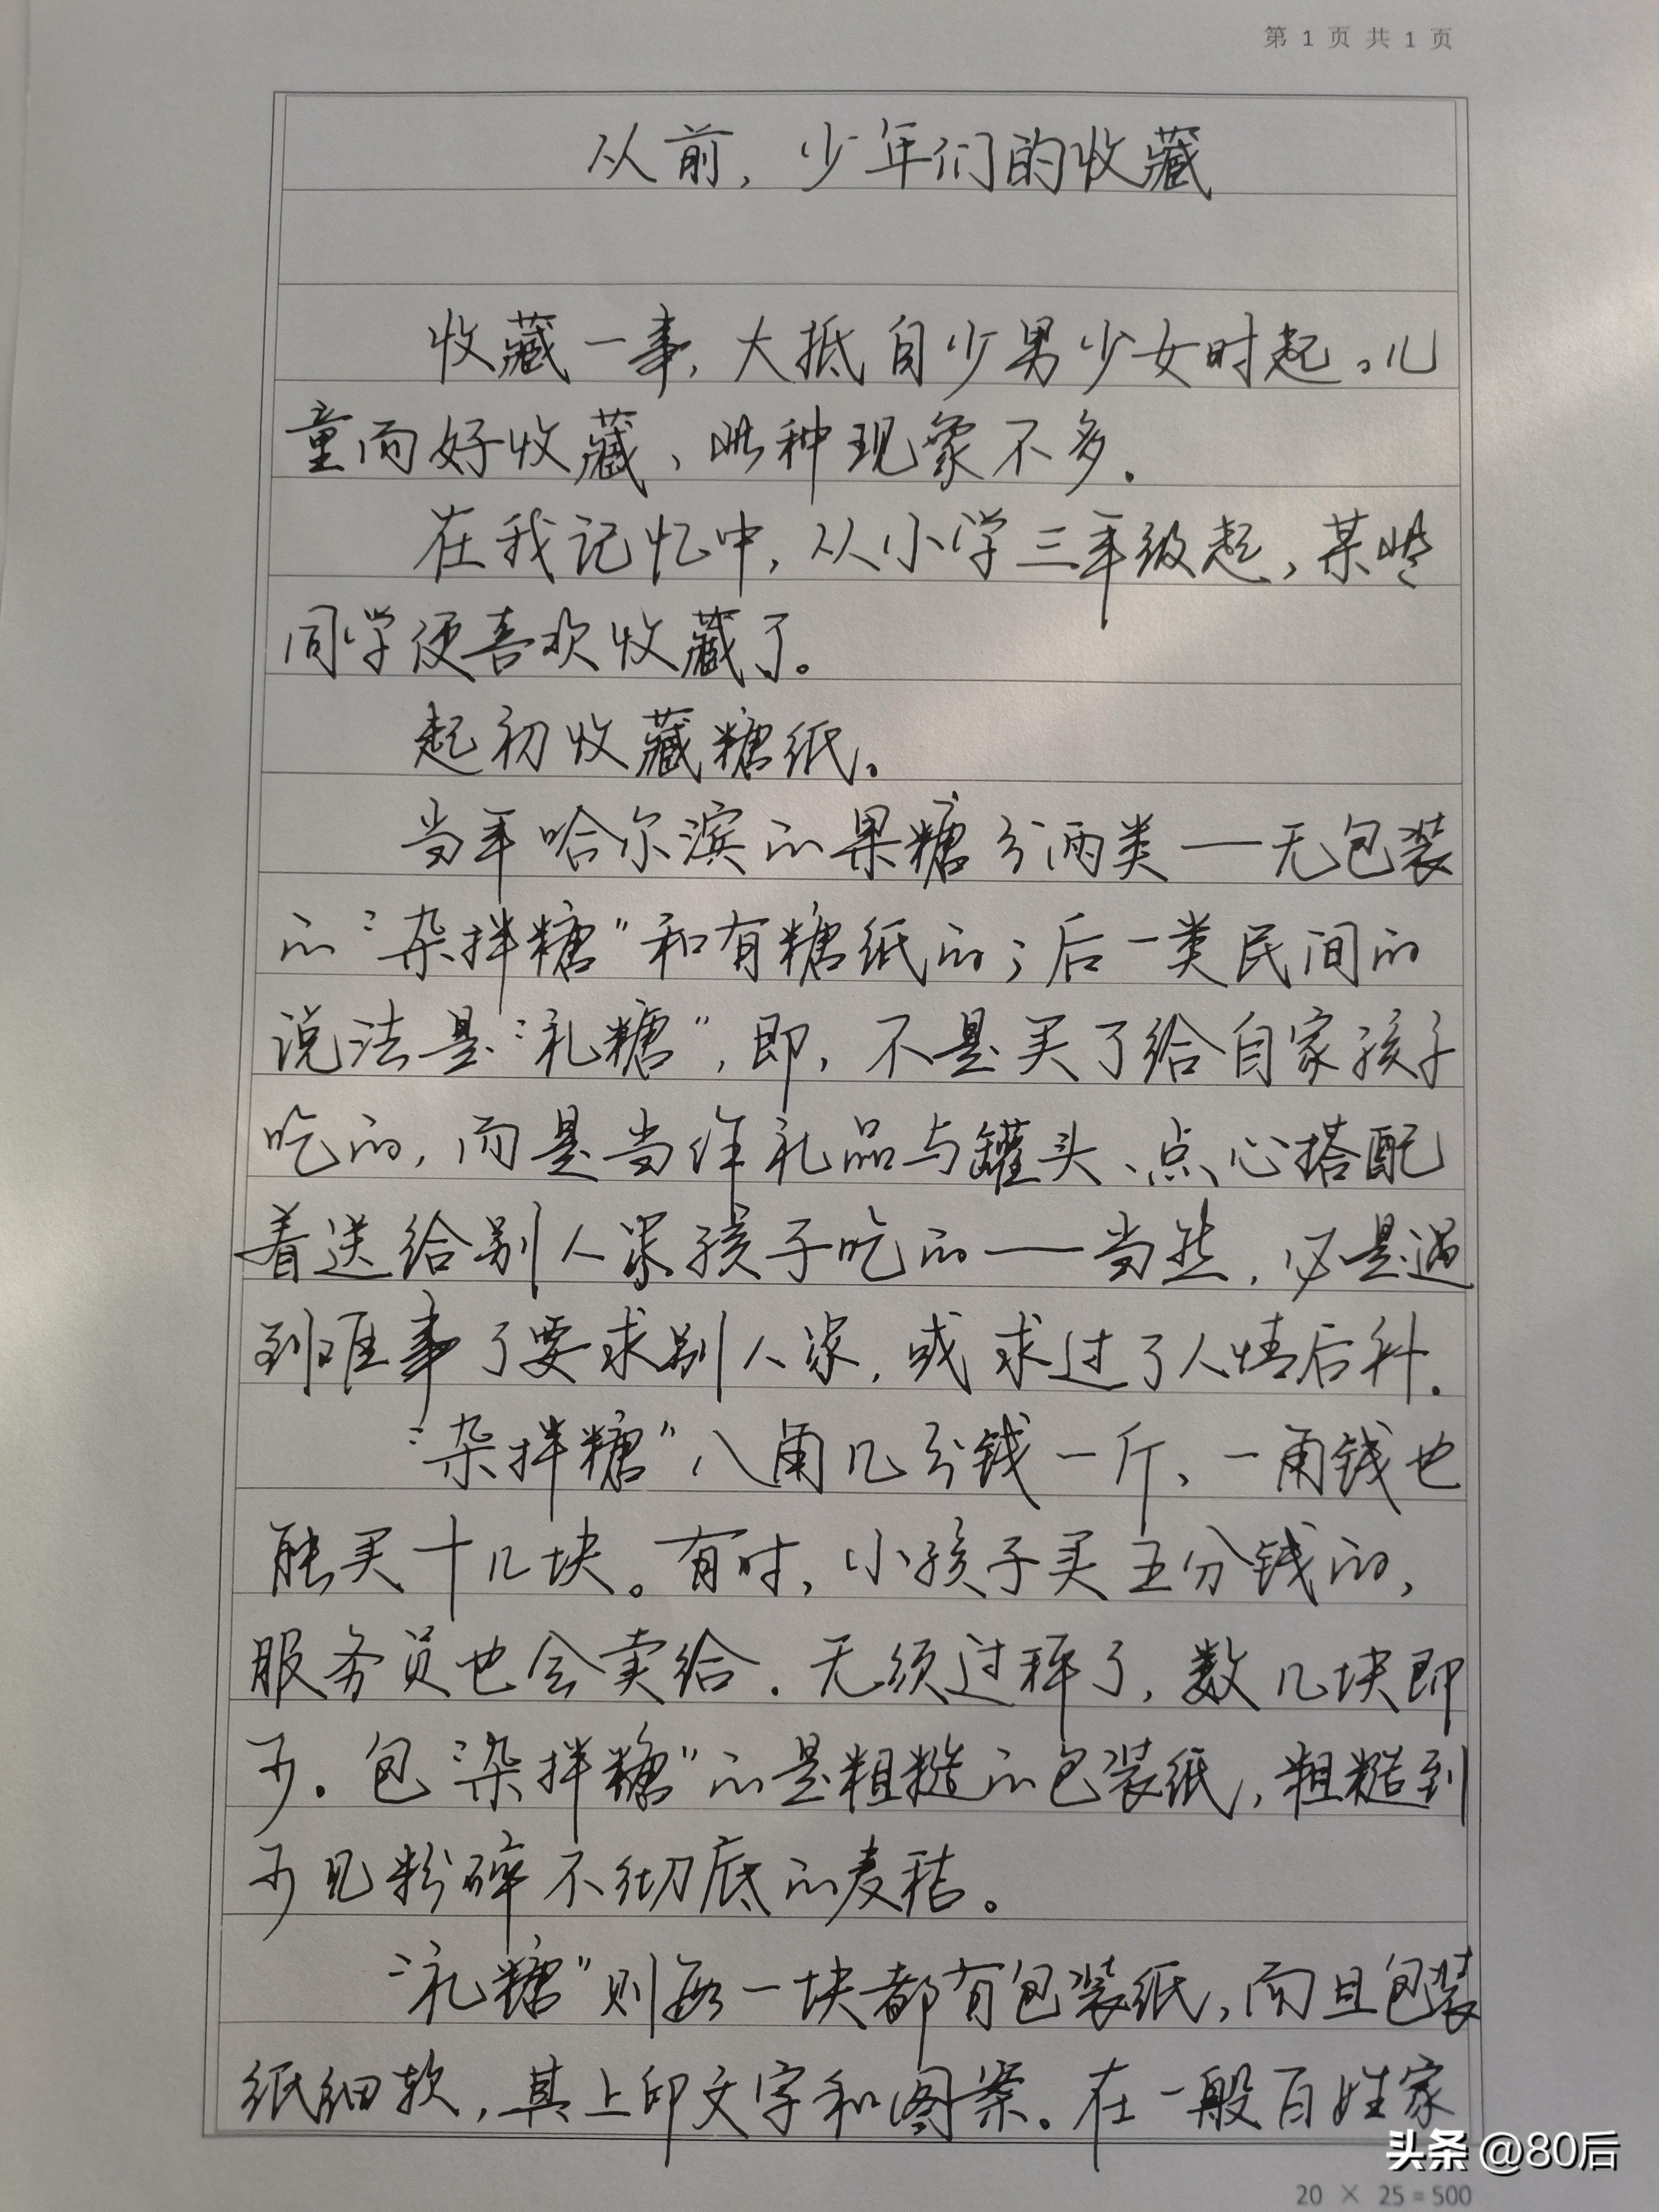 第 1 页 共 1 页
从前，少年们的收藏
收藏一事，大抵自少男少女时起。儿
童而好收藏、此种现象不多.
在我记忆中，从小学三年级起，某些
同学便喜欢收藏了。
起初收藏糖纸。
当年哈尔滨的果糖分两类——无包装
的“杂拌糖”和有糖纸的；后一类民间的
说法是“礼糖”，即，不是买了给自家孩子
吃的，而是当作礼品与罐头、点心搭配
着送给别人家孩子吃的——当然，必是遇
到难事了要求别人家，或求过了人情后补.
“杂拌糖”八角几分钱一斤、一角钱也
能买十几块。有时，小孩子买五分钱的，
服务员也会卖给.无须过秤了，数几块即
可.包“杂拌糖”的是粗糙的包装纸，粗糙到
可见粉碎不彻底的麦秸。
“礼糖”则每一块都有包装纸，而且包装
纸细软，其上印文字和图案。在一般百姓家
头条 @80后
20 × 25 = 500